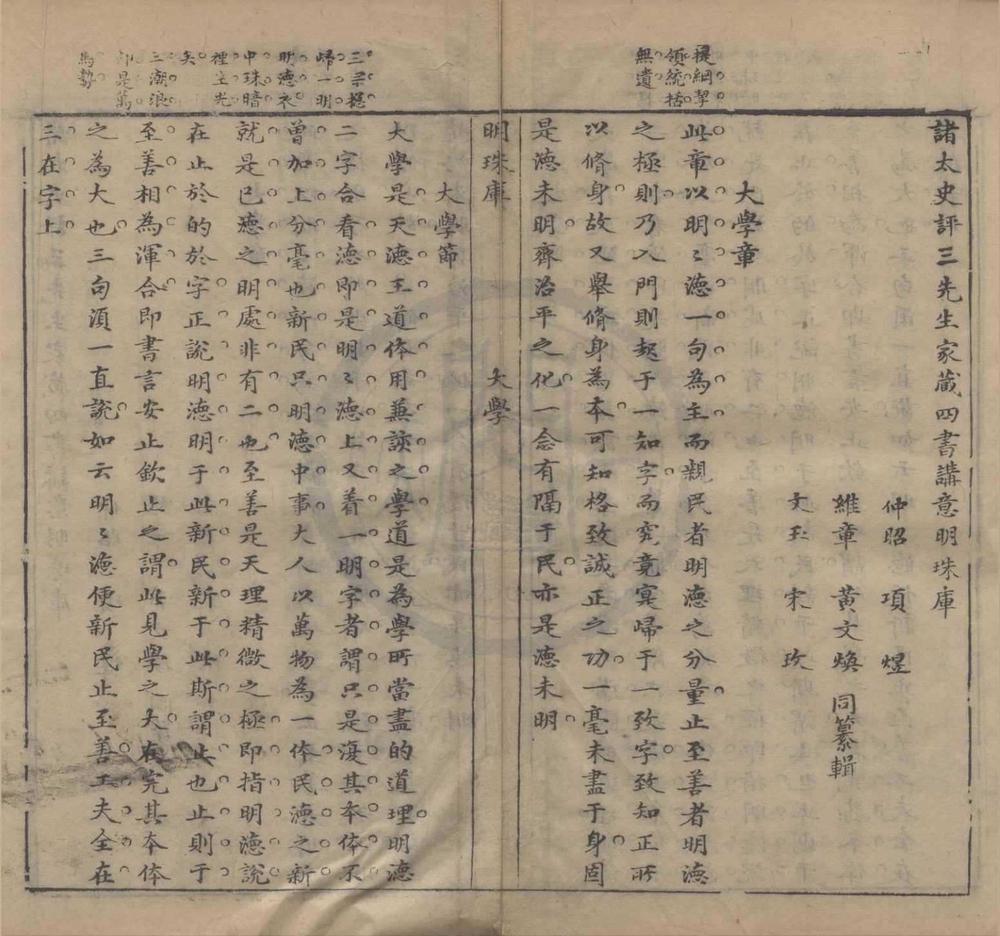 諸太史評三先生家藏四書講意明珠庫
仲昭 項煜
維章 黃文煥 同纂輯
文玉 宋玫
大學章
提綱挈
領統括
無遺
此章以明〻德一句為主而親民者明德之分量止至善者明德
之極則乃入門則契于一知字而究竟寔歸于一致字致知正所
以脩身故又舉脩身為本可知格致誠正之功一毫未盡于身固
是德未明齊治平之化一念有隔于民亦是德未明
明珠庫 大學
大學節
三句總
歸一明
明德衣
中珠暗
裡生光
矣
三潮浪
即是萬
馬勢
大學是天德王道体用兼該之學道是為學所當盡的道理明德
二字合看德即是明〻德上又着一明字者謂只是復其本体不
曾加上分毫也新民只明德中事大人以萬物為一体民德之新
就是已德之明處非有二也至善是天理精微之極即指明德說
在止於的於字正說明德明于此新民新于此斯謂止也止則于
至善相為渾合即書言安止欽止之謂此見學之大在完其本体
之為大也三句湏一直說如云明〻德便新民止至善工夫全在
三在字上